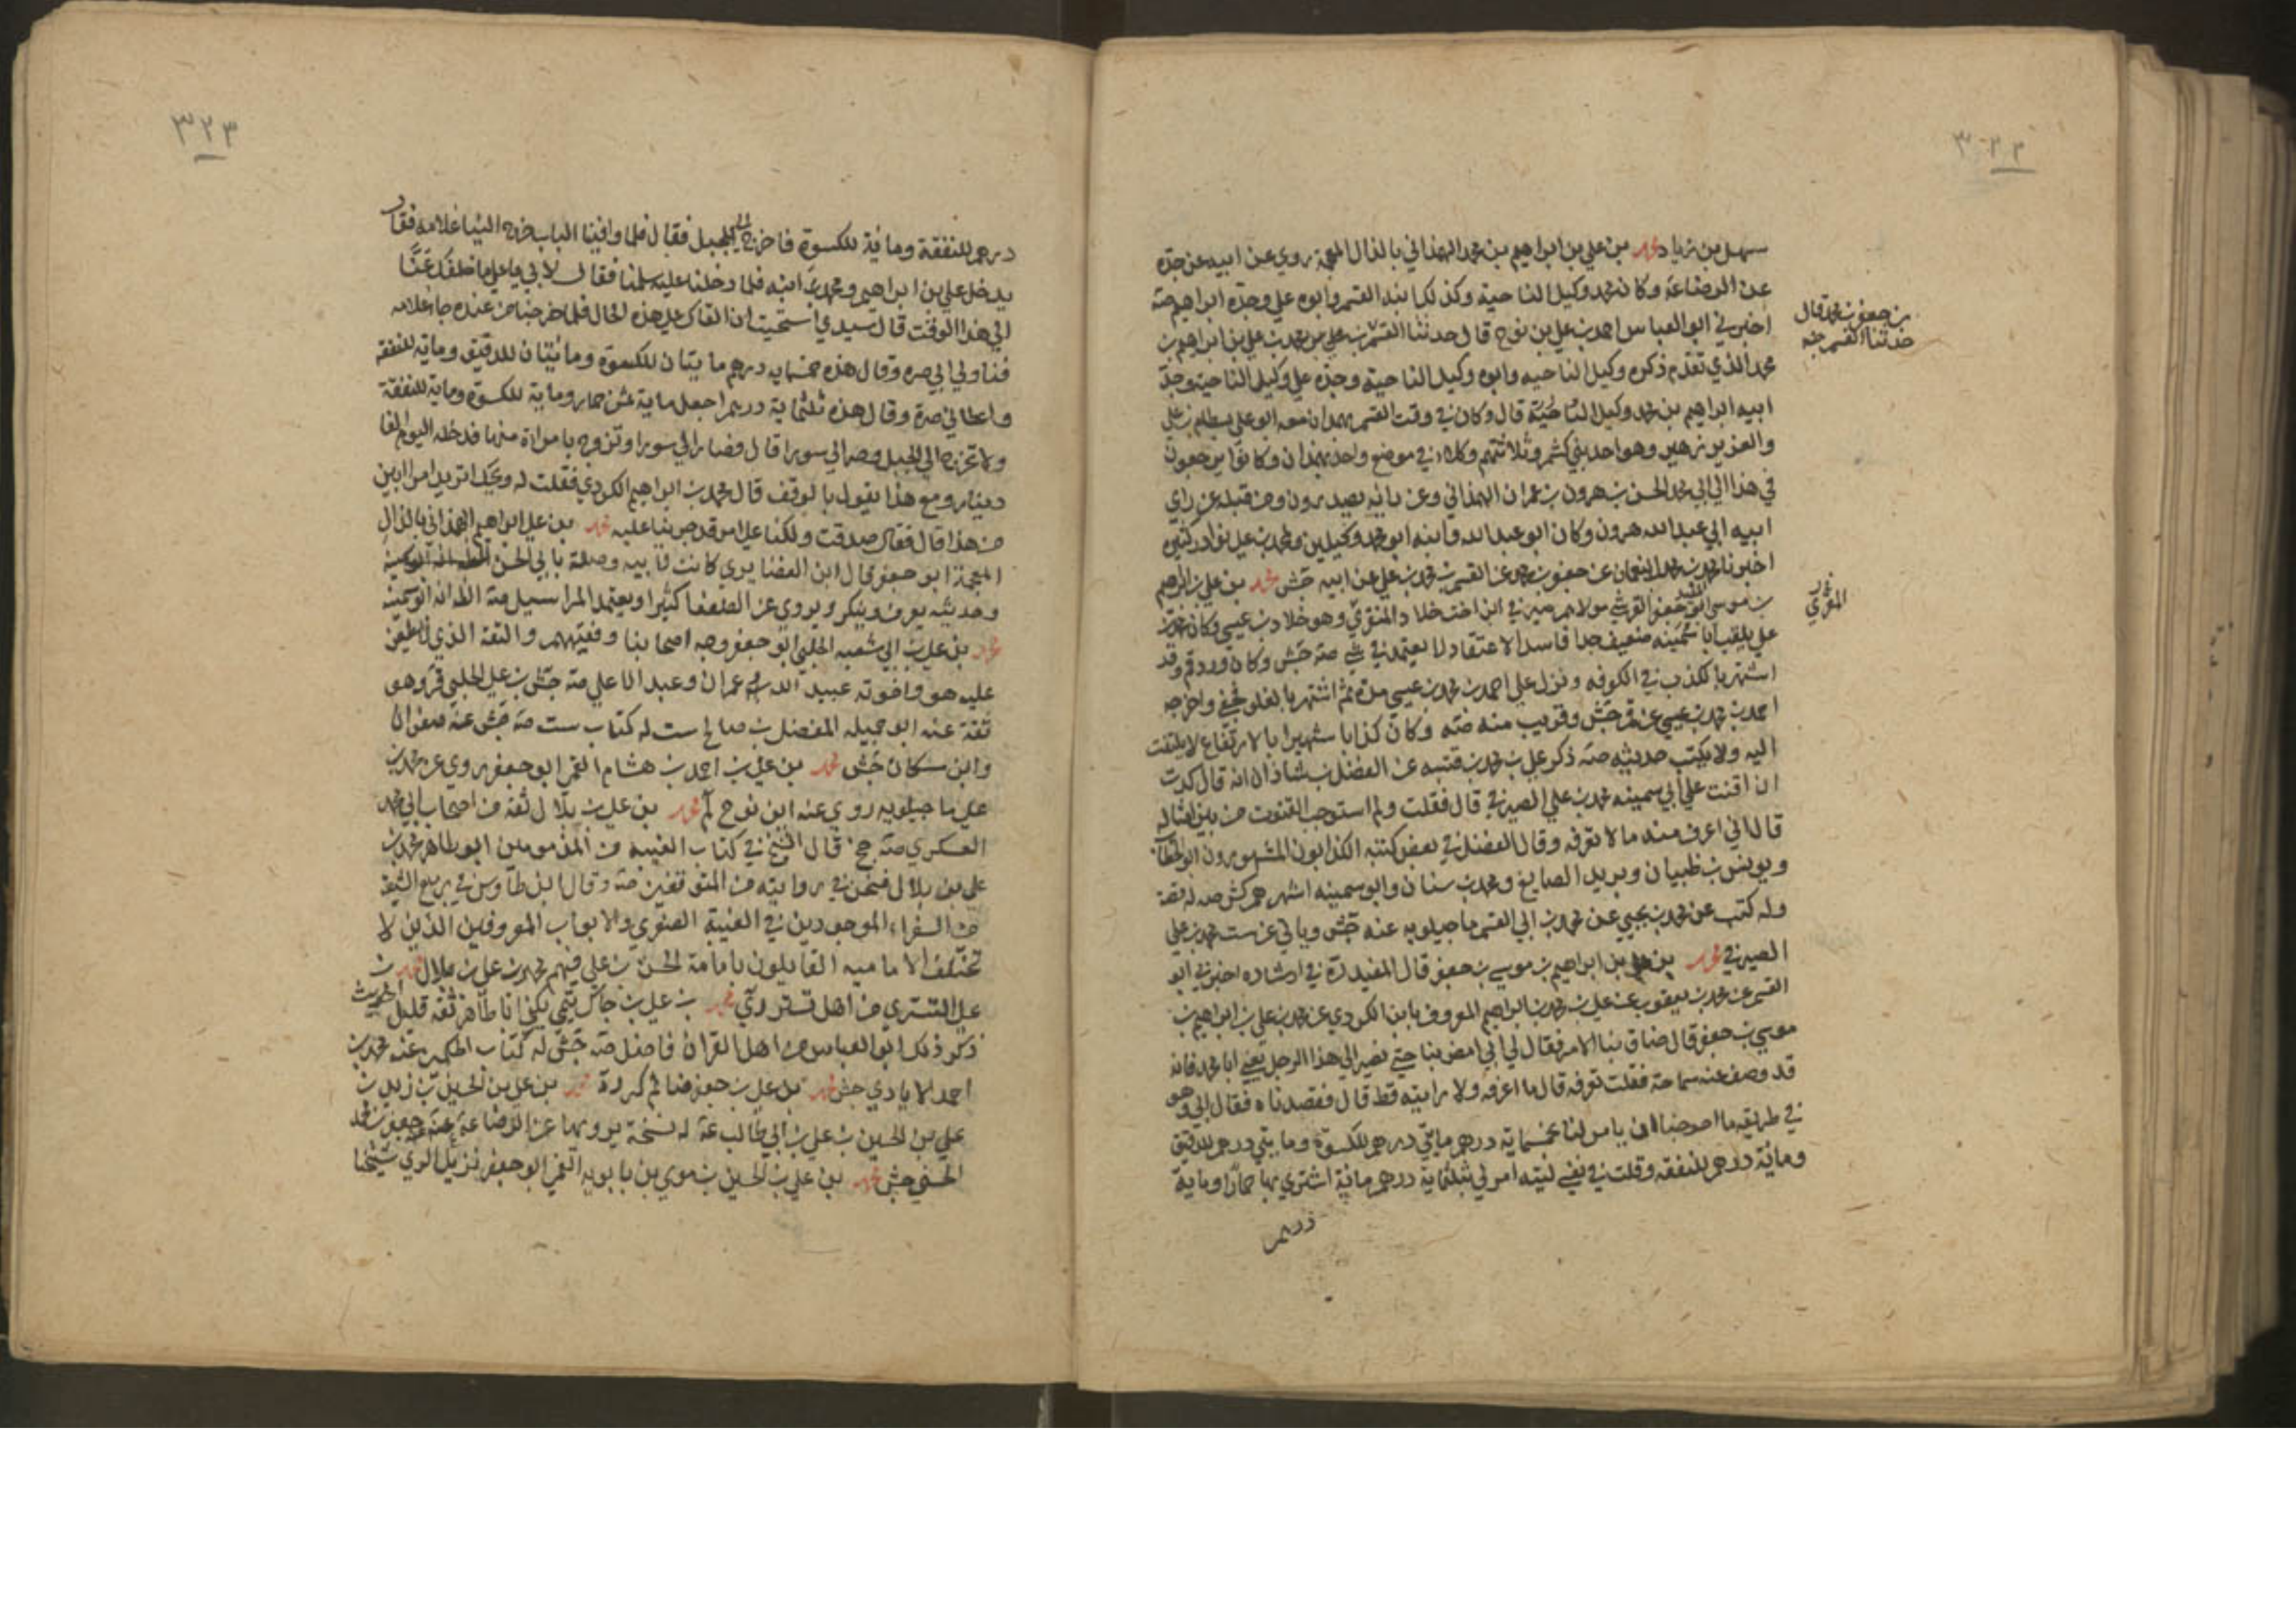 ٣٢٢
سهل بن زياد محمد بن علي بن ابراهيم بن محمد الهمذاني بالذال المعجمة روي عن ابيه عن جده
عن الرضا عة وكان محمد وكيل الناحية وكذلك ابنه القسم وابوه علي وجده ابراهيم صة
اخبرني ابو العباس احمد بن علي بن نوح قال حدثنا القسم بن محمد بن علي بن ابراهيم بن
بن جعفر بن محمد قال
حدثنا القسم جش
محمد الذي تقدم ذكره وكيل الناحيه وابوه وكيل الناحية وجده علي وكيل الناحية وجد
ابيه ابراهيم بن محمد وكيل الناحية قال وكان في وقت القسم بهمدان معه ابو علي بسطام بن علي
والعزيز بن زهير وهو احد بني كشمرد ثلاثتهم وكلاء في موضع واحد بهمذان وكانوا يرجعون
في هذا الي ابي محمد الحسن بن هرون بن عمران الهمذاني وعن رايه يصدرون ومن قبله عن راي
ابيه ابي عبد الله هرون وكان ابو عبد الله وابنه ابو محمد وكيلين ومحمد بن علي نوادر كبير
اخبرنا محمد بن محمد النعمان عن جعفر بن محمد عن القسم بن محمد بن علي عن ابيه جش محمد بن علي بن ابرهيم
بن موسي ابو جعفر القرشي مولاهم صيرفي ابن اخت خلاد المنقري وهو خلاد بن عيسي وكان محمد بن
المقري
علي يلقب ابا سمينه ضعيف جدا فاسد الاعتقاد لا يعتمد في شي صة جش وكان ورد قم وقد
اشتهر بالكذب في الكوفه ونزل علي احمد بن محمد بن عيسي مدة ثم اشتهر بالغلو فجفي واخرجه
احمد بن محمد بن عيسي عن قم جش وقريب منه صه وكان كذابا شهيرا بالارتفاع لا يلتفت
اليه ولا يكتب حديثه صة ذكر علي بن محمد بن قتيبه عن الفضل بن شاذان انه قال كدت
ان اقنت علي ابي سمينه محمد بن علي الصيرفي قال فقلت ولم استوجب القنوت من بين امثاله
قال اني اعرف منه ما لا تعرفه وقال الفضل في بعض كتبه الكذابون المشهورون ابو الخطاب
ويونس بن ظبيان ويريد الصايغ ومحمد بن سنان وابو سمينه اشهرهم كش صه
وله كتب عن محمد بن يحيي عن محمد بن ابي القسم ماجيلويه عنه جش وياتي عن ست محمد بن علي
الصيرفي محمد بن علي بن ابراهيم بن موسي بن جعفر قال المفيد ره في ارشاده اخبرني ابو
القسم عن محمد بن يعقوب عن علي بن محمد بن ابراهيم المعروف بابن الكردي عن محمد بن علي بن ابراهيم بن
موسي بن جعفر قال ضاق بنا الامر فقال لي ابي امض بنا حتي نصير الي هذا الرجل يعني ابا محمد فانه
قد وصف عنه سماحة فقلت تعرفه قال ما اعرفه ولا رايته قط قال فقصدناه فقال ابي وهو
في طريقه ما احوجنا الي ان يامر لنا بخمسماية درهم مايتي درهم للكسوة ومايتي درهم للدقيق
وماية درهم للنفقه وقلت في نفسي ليته امر لي بثلثماية درهم ماية اشتري بها حمارا وماية
درهم
٣٢٣
درهم للنفقة وماية للكسوة فاخرج الي الجبل فقال فلما وافينا الباب خرج الينا غلامه فقال
يدخل علي بن ابراهيم ومحمد ابنه فلما دخلنا عليه سلمنا فقال لابي يا علي ما خلفك عنا
الي هذا الوقت قال سيدي استحييت ان القاك علي هذه الحال فلما خرجنا من عنده جاء غلامه
فناول ابي صره وقال هذه خمسمايه درهم مايتان للكسوة ومايتان للدقيق وماية للنفقه
واعطاني صرة وقال هذه ثلثماية درهم اجعل ماية ثمن حمار وماية للكسوة وماية للنفقة
ولا تخرج الي الجبل وصر الي سورا قال فصار الي سورا وتزوج بامراة منها فدخله اليوم الفا
دينار ومع هذا يقول بالوقف قال محمد بن ابراهيم الكردي فقلت له ويحك اتريد امرا ابين
من هذا قال فقال صدقت ولكنا علي امر قد جرينا عليه محمد بن علي بن ابراهيم الهمذاني بالذال
المعجمة ابو جعفر قال ابن الغضايري كانت لابيه وصلة بابي الحسن
وحديثه يعرف وينكر ويروي عن الضعفا كثيرا ويعتمد المراسيل صة الظ انه ابو سمينه
محمد بن علي بن ابي شعبه الحلبي ابو جعفر وجه اصحابنا وفقيههم والثقة الذي لا يطعن
عليه هو واخوته عبيد الله وعمران وعبد الاعلي صة جش بن علي الحلبي ق وهو
ثقة عنه ابو جميله المفضل بن صالح ست له كتاب ست صة جش عنه صفوان
وابن مسكان جش محمد بن علي بن احمد بن هشام القمي ابو جعفر روي عن محمد بن
علي ماجيلويه روي عنه ابن نوح لم محمد بن علي بن بلال ثقه من اصحاب ابي محمد
العسكري صة جخ قال الشيخ في كتاب الغيبه من المذمومين ابو طاهر محمد بن
علي بن بلال فنحن في روايته من المتوقفين صة وقال ابن طاوس في ربيع الشيعة
من السفراء الموجودين في الغيبة الصغري والابواب المعروفين الذين لا
تختلف الاماميه القايلون بامامة الحسن بن علي فيهم محمد بن علي بن بلال محمد بن
علي التستري من اهل تستر دي محمد بن علي بن جاك قمي يكني ابا طاهر ثقه قليل الحديث
ذكر ذلك ابو العباس من اهل القران فاضل صة جش له كتاب عنه محمد بن
احمد الايادي جش محمد بن علي بن جعفر ضا لم كر دة محمد بن علي بن الحسين بن زيد بن
علي بن الحسين بن علي بن ابي طالب عة له نسخة يرويها عن الرضا عة عنه جعفر بن محمد
الحسني جش محمد بن علي بن الحسين بن موسي بن بابويه القمي ابو جعفر نزيل الري شيخنا